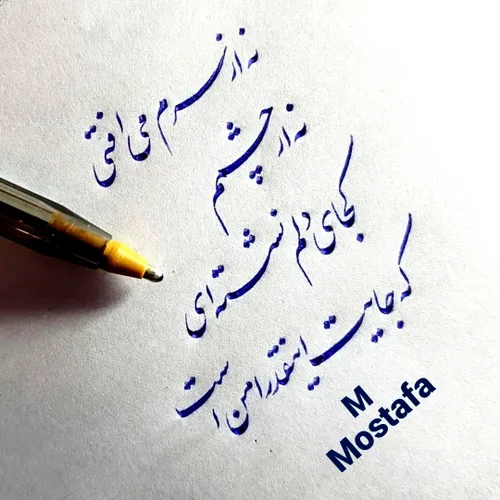 نه از سرم می افتی
نه از چشمم
کجای دلم نشسته ای
که جایت اینقدر امن است
M
Mostafa